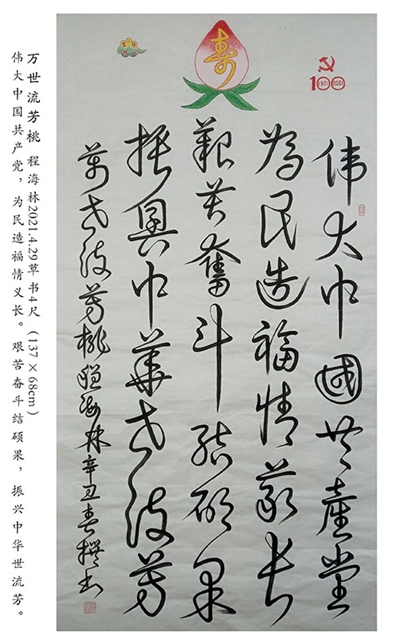 寿
100
1921 2021
伟大中國共產党
為民造福情義长
艱苦奮斗結硕果
振興中華世流芳
萬世流芳桃 程海林辛丑春撰书
万世流芳桃 程海林2021.4.29草书4尺(137×68cm)
伟大中国共产党，为民造福情义长。艰苦奋斗结硕果，振兴中华世流芳。